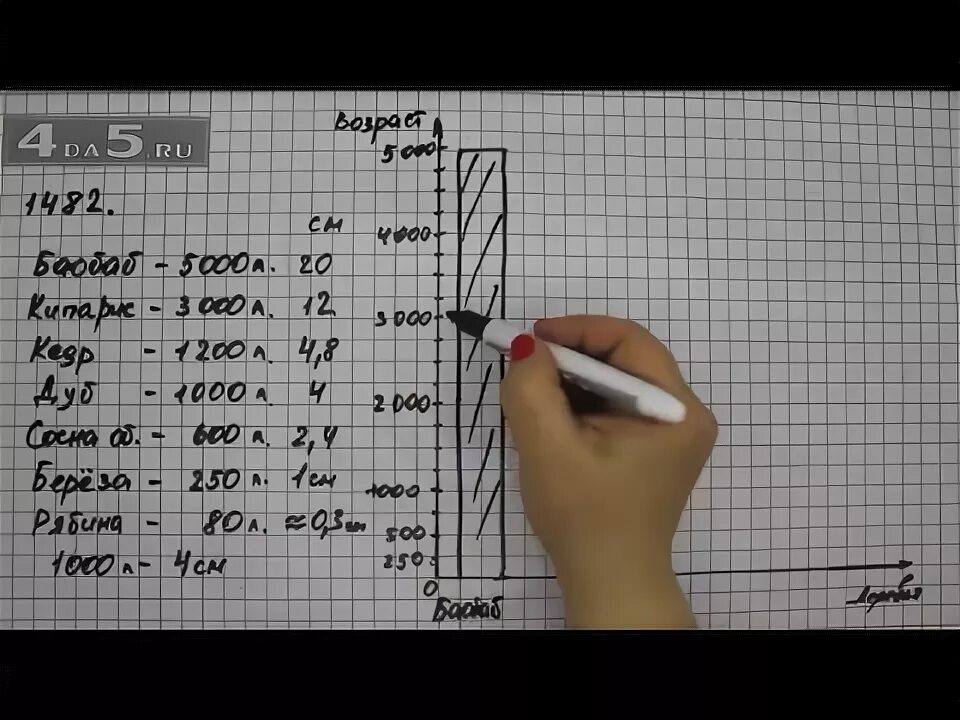 4DA5.RU
1482.
см
Баобаб - 5000 л. 20
Кипарис - 3000 л. 12
Кедр - 1200 л. 4,8
Дуб - 1000 л. 4
Сосна об. - 600 л. 2,4
Берёза - 250 л. 1см
Рябина - 80 л. ≈ 0,3 см
1000 л - 4 см
Возраст
5000
4000
3000
2000
1000
500
250
0
Баобаб
Деревья